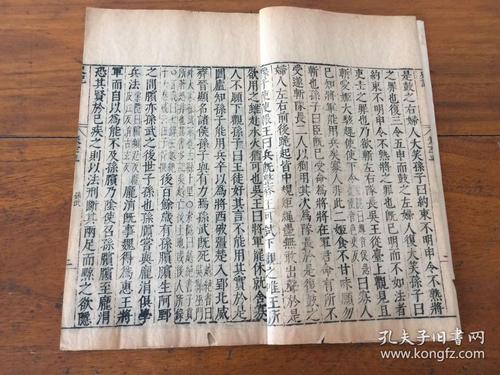 是鼓之右婦人大笑孫子曰約束不明申令不熟將
之罪也復三令五申而鼓之左婦人復大笑孫子曰
約束不明申令不熟將之罪也既已明而不如法者
吏士之罪也乃欲斬左右隊長吳王從臺上觀見且
斬愛姬大駭趣使使下令曰寡人
已知將軍能用兵矣寡人非此二姬食不甘味願勿
斬也孫子曰臣既已受命爲將將在軍君命有所不
受遂斬隊長二人以徇用其次爲隊長於是復鼓之
婦人左右前後跪起皆中規矩繩墨無敢出聲於是
孫子使使報王曰兵既整齊王可試下觀之唯王所
欲用之雖赴水火猶可也吳王曰將軍罷休就舍寡
人不願下觀孫子曰王徒好其言不能用其實於是
闔廬知孫子能用兵卒以爲將西破彊楚入郢北威
齊晉顯名諸侯孫子與有力焉孫武既死
後百餘歲有孫臏臏生阿鄄
之間臏亦孫武之後世子孫也孫臏嘗與龐涓俱學
兵法龐涓既事魏得爲惠王將
軍而自以爲能不及孫臏乃陰使召孫臏臏至龐涓
恐其賢於己疾之則以法刑斷其兩足而黥之欲隱
孔夫子旧书网
www.kongfz.com